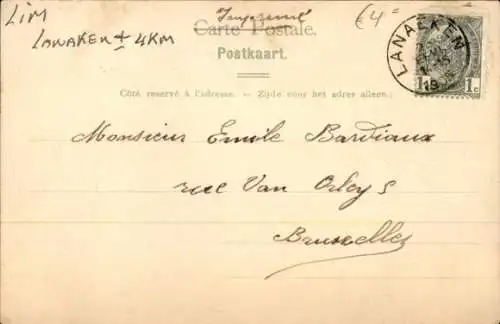 LIM
LANAKEN ± 4KM
€4=
Carte Postale.
Postkaart.
LANAEKEN
1c 1c
Côté réservé à l'adresse. - Zijde voor het adres alleen.
Monsieur Emile Bardiaux
rue Van Orley 8
Bruxelles